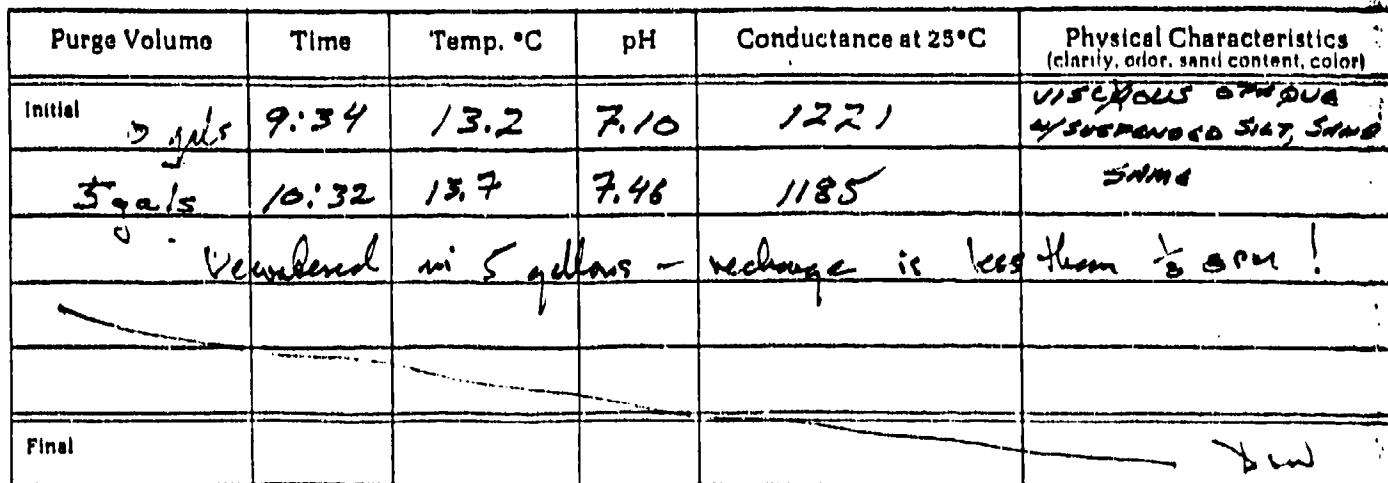 Purge Volume Time Temp. °C pH Conductance at 25°C Physical Characteristics
(clarity, odor, sand content, color)
Initial gals 9:34 13.2 7.10 1221 VISCOUS OPAQUE
W/SUSPENDED SILT, SAND
5 gals 10:32 13.7 7.46 1185 SAME
Dewatered in 5 gallons - recharge is less than GPM!
Final